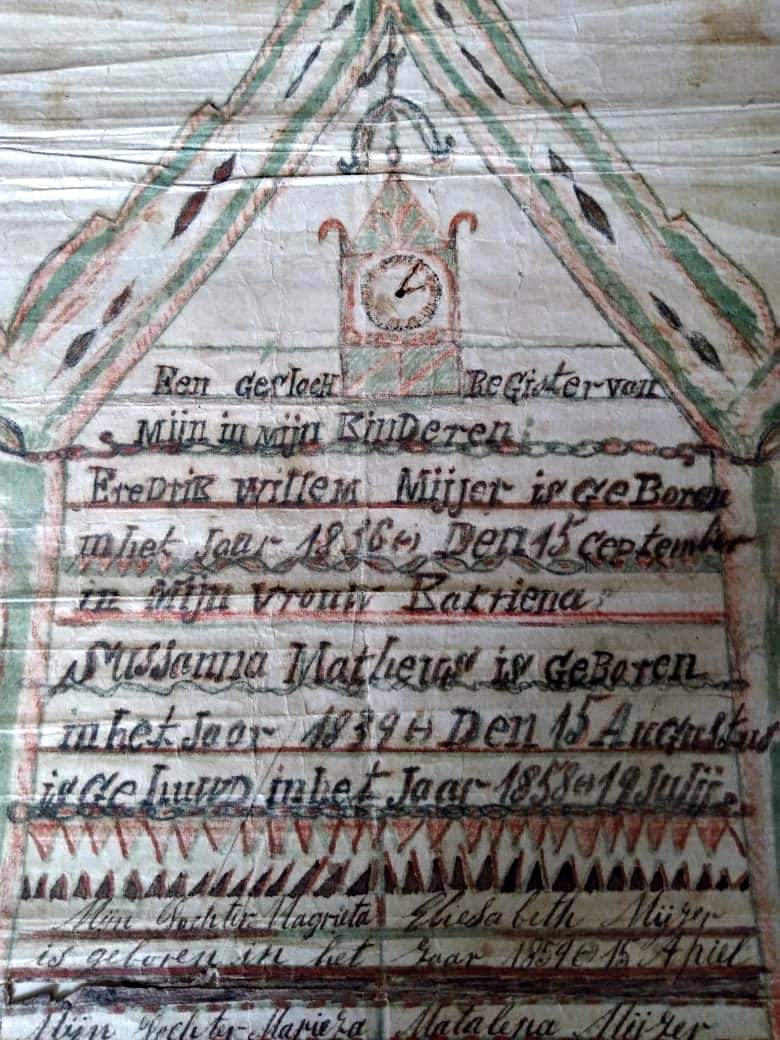 Een Geslach Register van
Mijn in Mijn Kinderen
Fredrik Willem Mijjer is Geboren
in het Jaar 1836 Den 15 September
in Mijn Vrouw Katriena
Sussanna Matheus is Geboren
in het Jaar 1839 Den 15 Augustus
is Ge in het Jaar 1858 19 Julij
Mijn Dochter Magrieta Eliesabeth Mijzer
is geboren in het Jaar 1859 15 Apiel
Mijn Dochter Marieza Matalena Mijzer